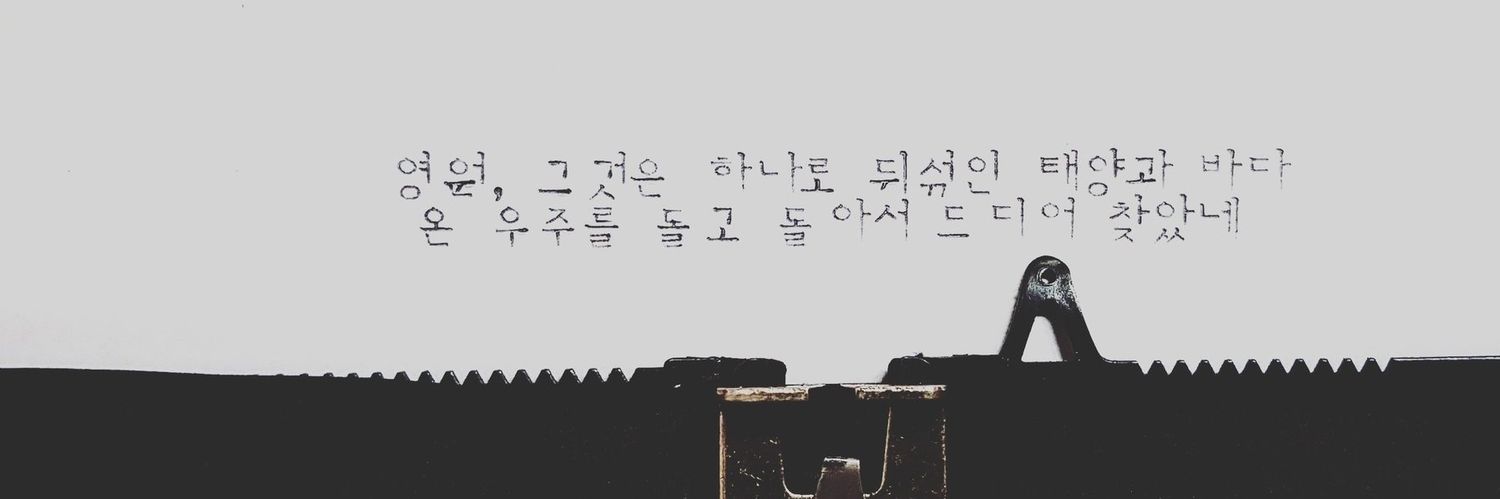 영원, 그것은 하나로 뒤섞인 태양과 바다
온 우주를 돌고 돌아서 드디어 찾았네